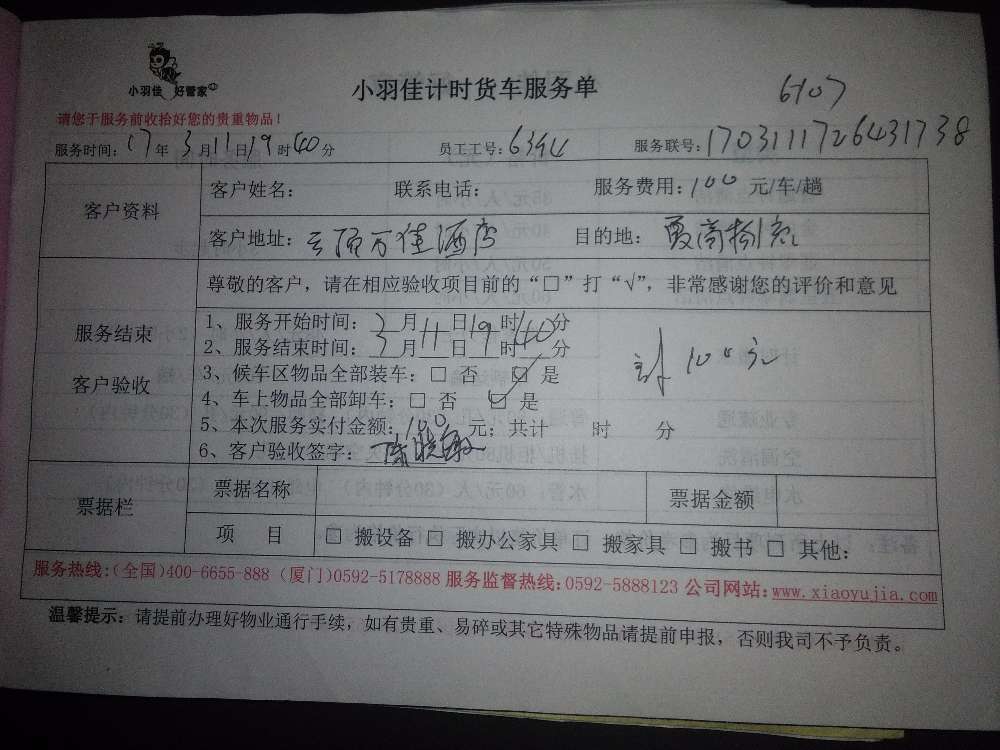 小羽佳 好管家
小羽佳计时货车服务单
6107
请您于服务前收拾好您的贵重物品！
服务时间：17年3月11日19时40分 员工工号：6394 服务联号：1703111726431738
客户资料
客户姓名： 联系电话： 服务费用：100元/车/趟
客户地址：云顶万佳酒店 目的地：
服务结束
客户验收
尊敬的客户，请在相应验收项目前的“□”打“√”，非常感谢您的评价和意见
1、服务开始时间：3月11日19时40分
2、服务结束时间：3月11日19时40分
3、候车区物品全部装车：□ 否 ☑ 是
4、车上物品全部卸车：□ 否 ☑ 是
5、本次服务实付金额：100元；共计 时 分
6、客户验收签字：陈晓敏
计100元
票据栏
票据名称 票据金额
项 目 □ 搬设备 □ 搬办公家具 □ 搬家具 □ 搬书 □ 其他：
服务热线：(全国)400-6655-888 (厦门)0592-5178888 服务监督热线：0592-5888123 公司网站：www.xiaoyujia.com
温馨提示：请提前办理好物业通行手续，如有贵重、易碎或其它特殊物品请提前申报，否则我司不予负责。